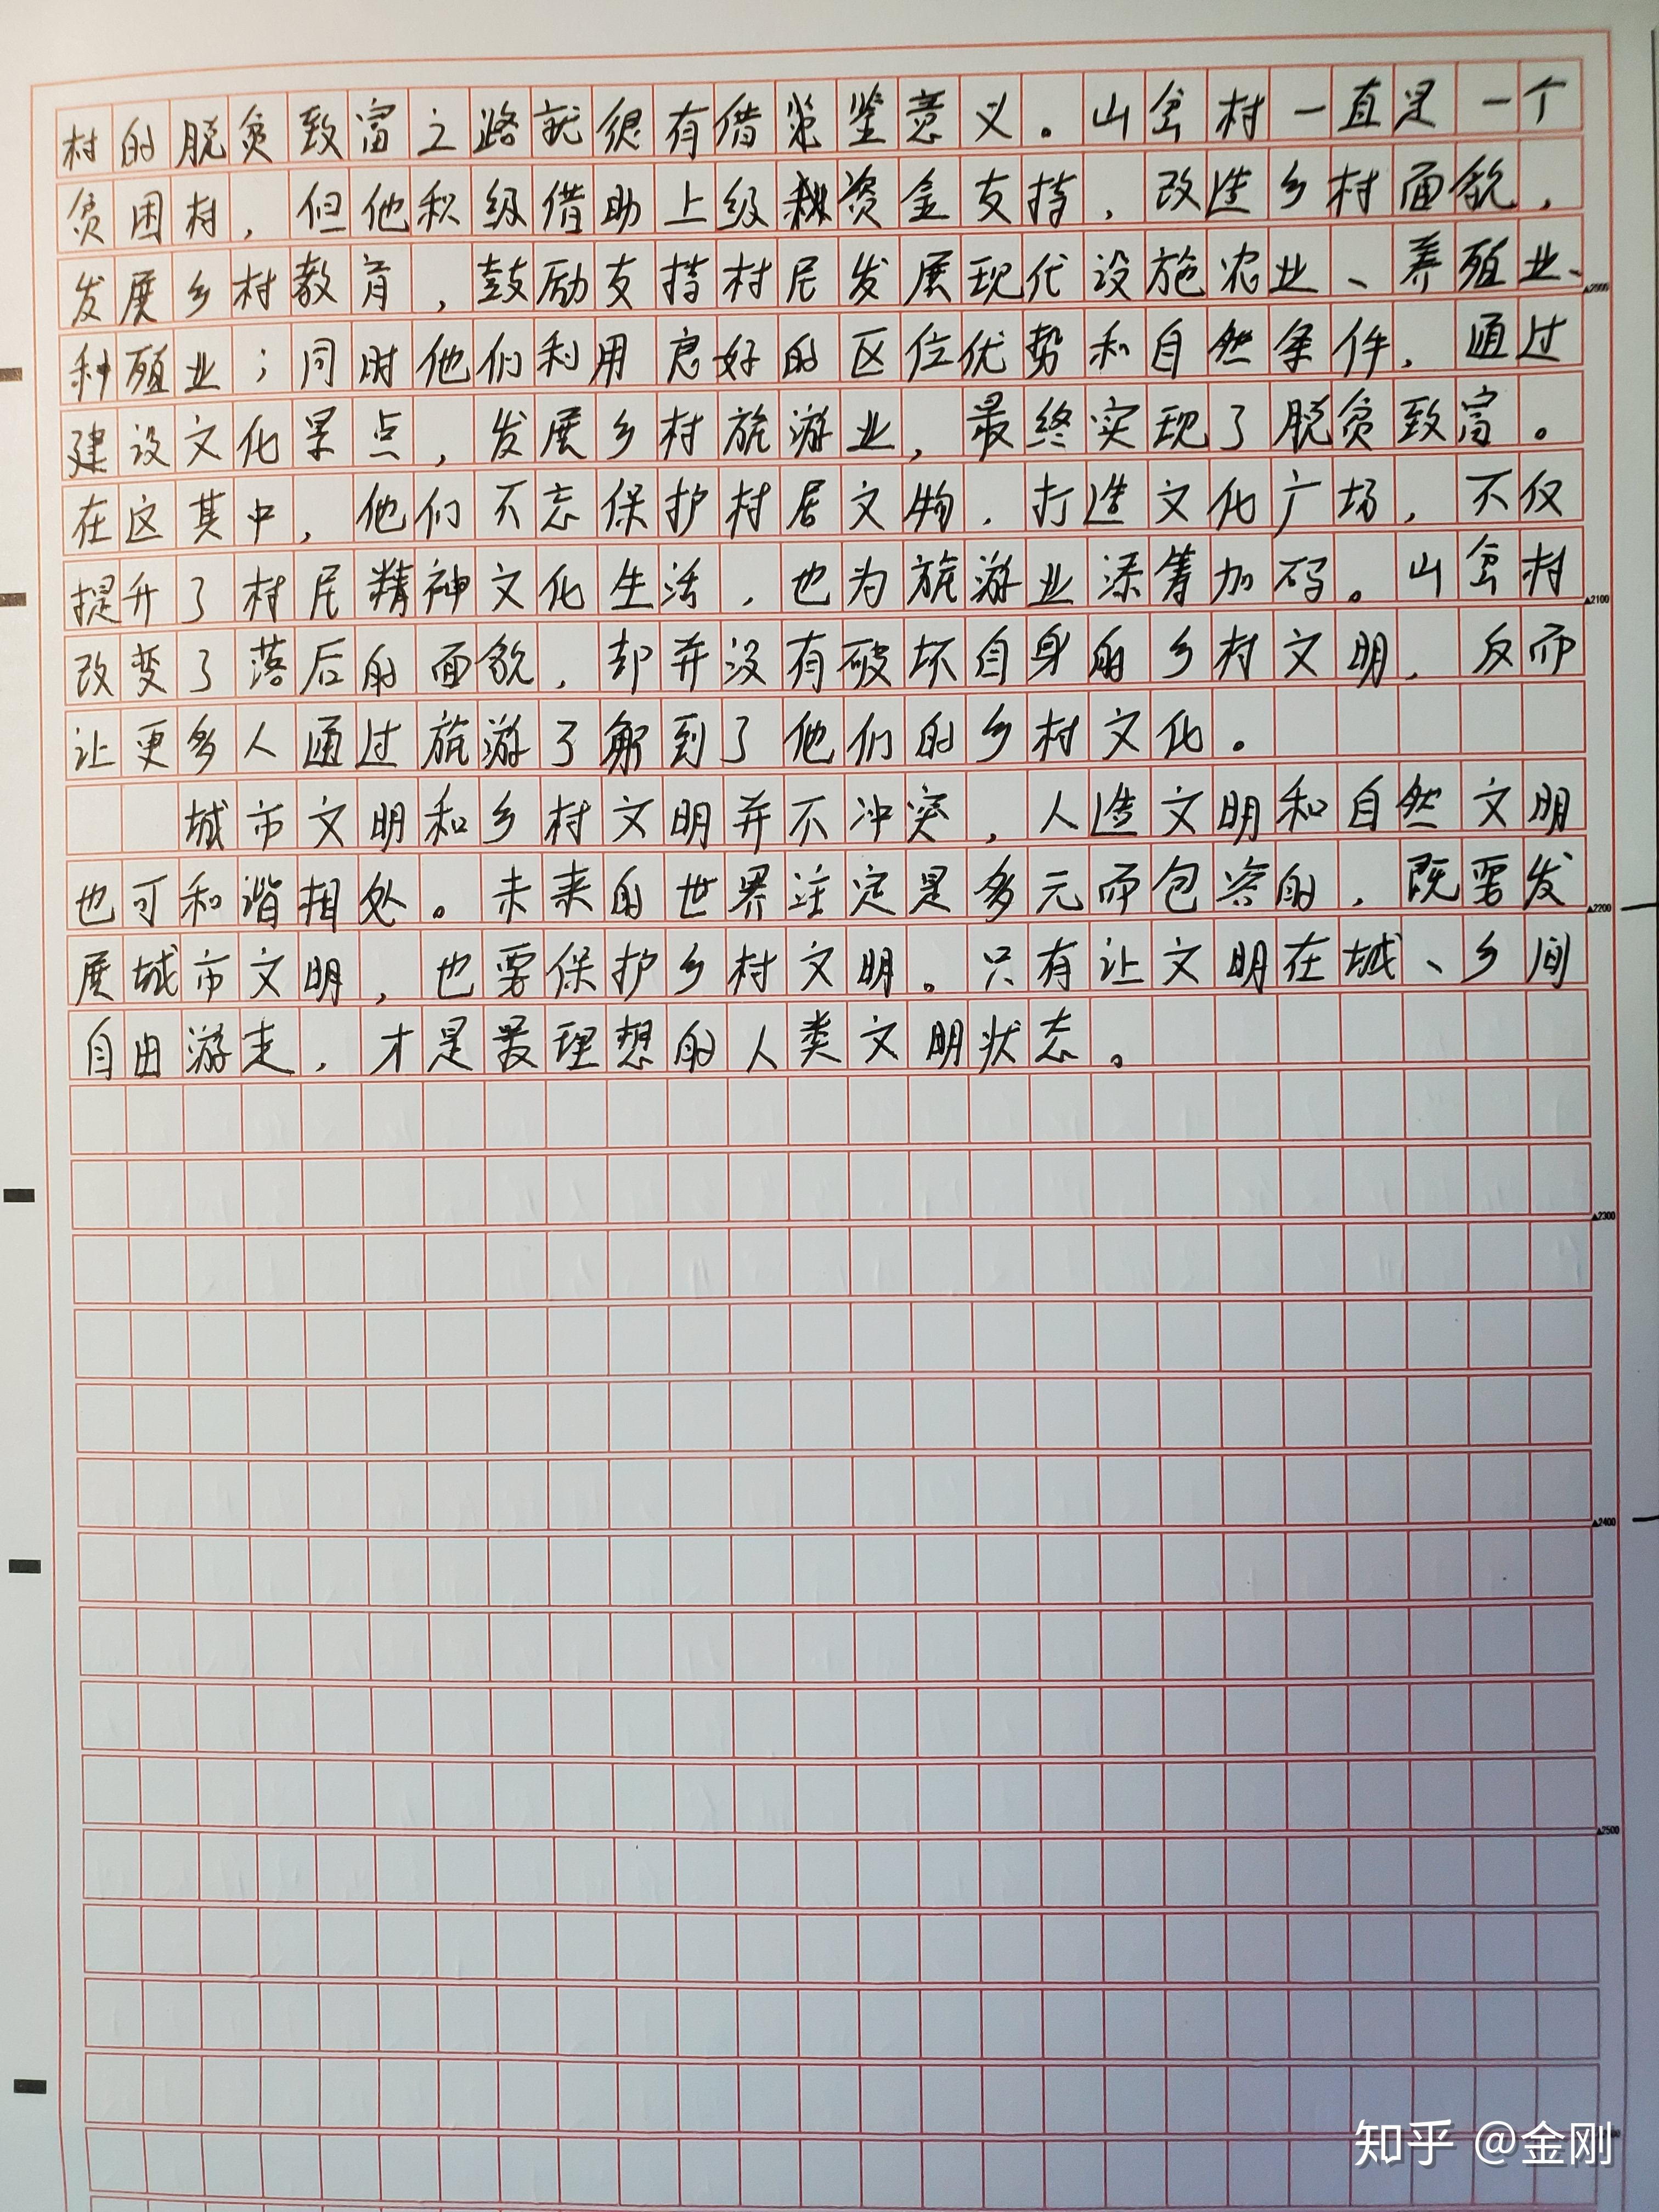 村的脱贫致富之路就很有借鉴意义。山岔村一直是一个
贫困村，但他积级借助上级资金支持，改造乡村面貌，
发展乡村教育，鼓励支持村民发展现代设施农业、养殖业、
种殖业；同时他们利用良好的区位优势和自然条件，通过
建设文化景点，发展乡村旅游业，最终实现了脱贫致富。
在这其中，他们不忘保护村居文物，打造文化广场，不仅
提升了村民精神文化生活，也为旅游业添筹加码。山岔村
改变了落后的面貌，却并没有破坏自身的乡村文明，反而
让更多人通过旅游了解到了他们的乡村文化。
城市文明和乡村文明并不冲突，人造文明和自然文明
也可和谐相处。未来的世界注定是多元而包容的，既要发
展城市文明，也要保护乡村文明。只有让文明在城、乡间
自由游走，才是最理想的人类文明状态。
▲2000
▲2100
▲2200
▲2300
▲2400
▲2500
知乎 @金刚